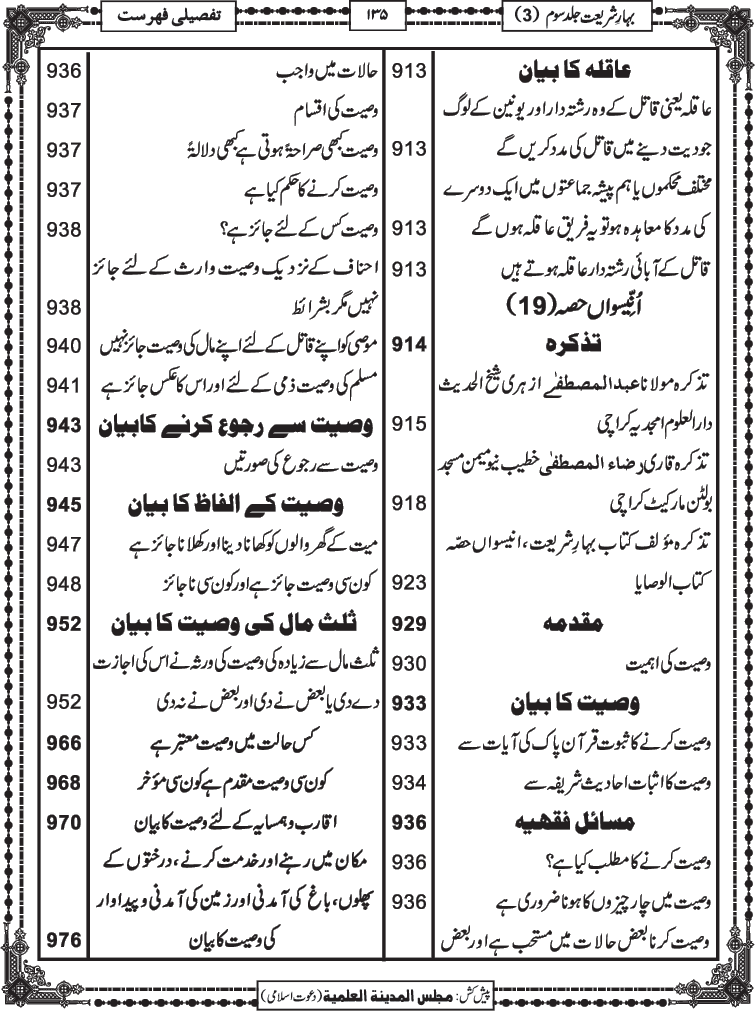 بہارِ شریعت جلد سوم (3)
۱۳۵
تفصیلی فہرست
عاقلہ کا بیان 913
عاقلہ یعنی قاتل کے وہ رشتہ دار اور یونین کے لوگ
جو دیت دینے میں قاتل کی مدد کریں گے 913
مختلف محکموں یا ہم پیشہ جماعتوں میں ایک دوسرے
کی مدد کا معاہدہ ہو تو یہ فریق عاقلہ ہوں گے 913
قاتل کے آبائی رشتہ دار عاقلہ ہوتے ہیں 913
اُنّیسواں حصہ (19)
تذکرہ 914
تذکرہ مولانا عبدالمصطفےٰ ازہری شیخ الحدیث
دارالعلوم امجدیہ کراچی 915
تذکرہ قاری رضاء المصطفیٰ خطیب نیو میمن مسجد
بولٹن مارکیٹ کراچی 918
تذکرہ مؤلف کتاب بہارِ شریعت، انیسواں حصّہ
کتاب الوصایا 923
مقدمہ 929
وصیت کی اہمیت 930
وصیت کا بیان 933
وصیت کرنے کا ثبوت قرآن پاک کی آیات سے 933
وصیت کا اثبات احادیث شریفہ سے 934
مسائل فقھیہ 936
وصیت کرنے کا مطلب کیا ہے؟ 936
وصیت میں چار چیزوں کا ہونا ضروری ہے 936
وصیت کرنا بعض حالات میں مستحب ہے اور بعض
حالات میں واجب 936
وصیت کی اقسام 937
وصیت کبھی صراحۃً ہوتی ہے کبھی دلالۃً 937
وصیت کرنے کا حکم کیا ہے 937
وصیت کس کے لئے جائز ہے؟ 938
احناف کے نزدیک وصیت وارث کے لئے جائز
نہیں مگر بشرائط 938
موصی کو اپنے قاتل کے لئے اپنے مال کی وصیت جائز نہیں 940
مسلم کی وصیت ذمی کے لئے اور اس کا عکس جائز ہے 941
وصیت سے رجوع کرنے کا بیان 943
وصیت سے رجوع کی صورتیں 943
وصیت کے الفاظ کا بیان 945
میت کے گھر والوں کو کھانا دینا اور کھلانا جائز ہے 947
کون سی وصیت جائز ہے اور کون سی ناجائز 948
ثلث مال کی وصیت کا بیان 952
ثلث مال سے زیادہ کی وصیت کی ورثہ نے اس کی اجازت
دے دی یا بعض نے دی اور بعض نے نہ دی 952
کس حالت میں وصیت معتبر ہے 966
کون سی وصیت مقدم ہے کون سی مؤخر 968
اقارب و ہمسایہ کے لئے وصیت کا بیان 970
مکان میں رہنے اور خدمت کرنے، درختوں کے
پھلوں، باغ کی آمدنی اور زمین کی آمدنی و پیداوار
کی وصیت کا بیان 976
پیش کش: مجلس المدینة العلمیة (دعوت اسلامی)